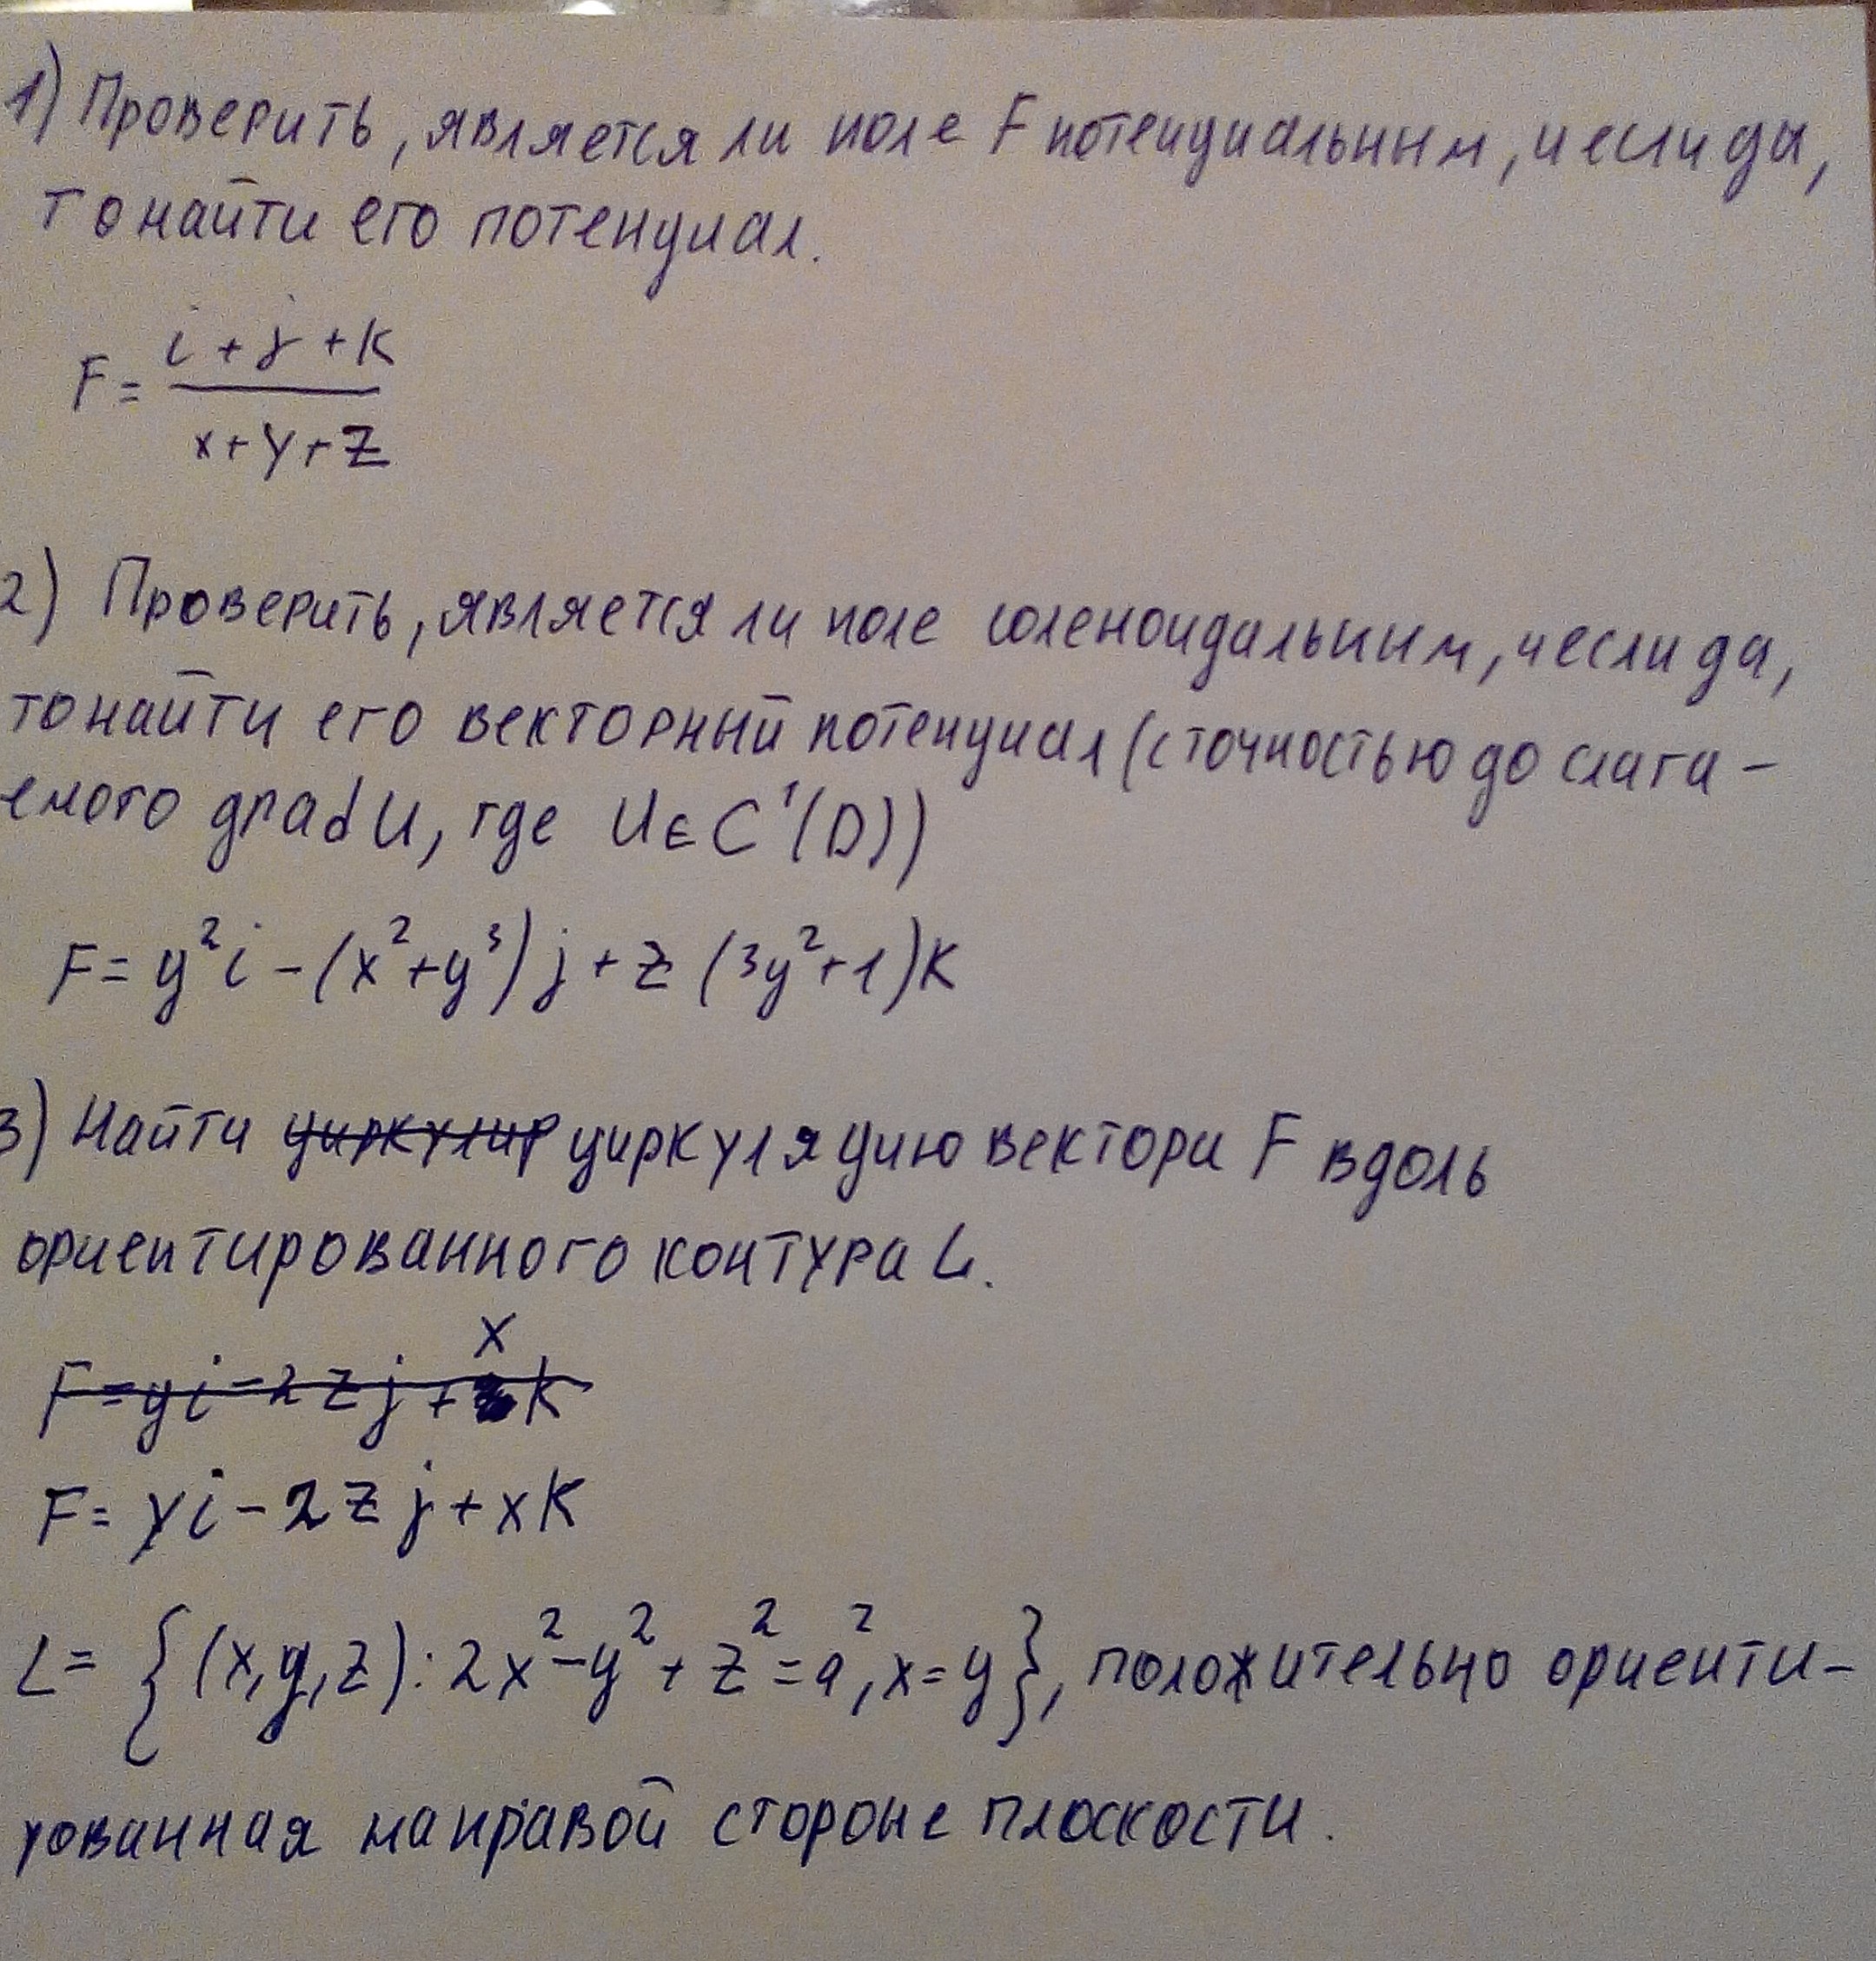 1) Проверить, является ли поле F потенциальным, и если да,
то найти его потенциал.
F = i + j + k
x + y + z
2) Проверить, является ли поле соленоидальным, и если да,
то найти его векторный потенциал (с точностью до слага-
емого град U, где U ∈ C¹(D))
F = y²i - (x² + y³)j + z(3y² + 1)k
3) Найти циркулир циркуляцию вектора F вдоль
ориентированного контура L.
F = yi - 2zj + xk
F = yi - 2zj + xk
L = {(x, y, z): 2x² - y² + z² = a², x = y}, положительно ориенти-
рованная на правой стороне плоскости.